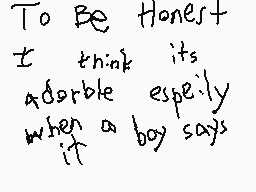 To Be Honest
I think its
adorble espeily
when a boy says
it